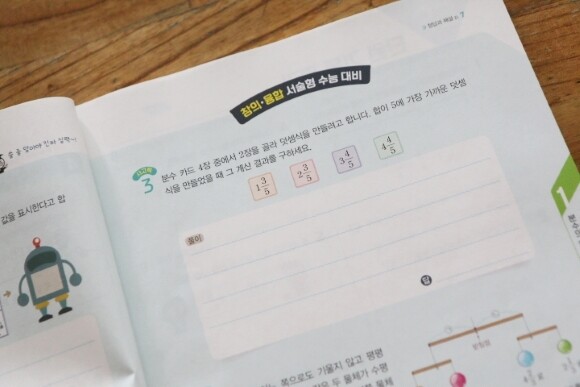 창의·융합 서술형 수능 대비
3
분수 카드 4장 중에서 2장을 골라 덧셈식을 만들려고 합니다. 합이 5에 가장 가까운 덧셈
식을 만들었을 때 그 계산 결과를 구하세요.
1 3/5 2 3/5 3 4/5 4 4/5
풀이
답
값을 표시한다고 합
쪽으로도 기울지 않고 평평
두 물체가 수평
물체
1